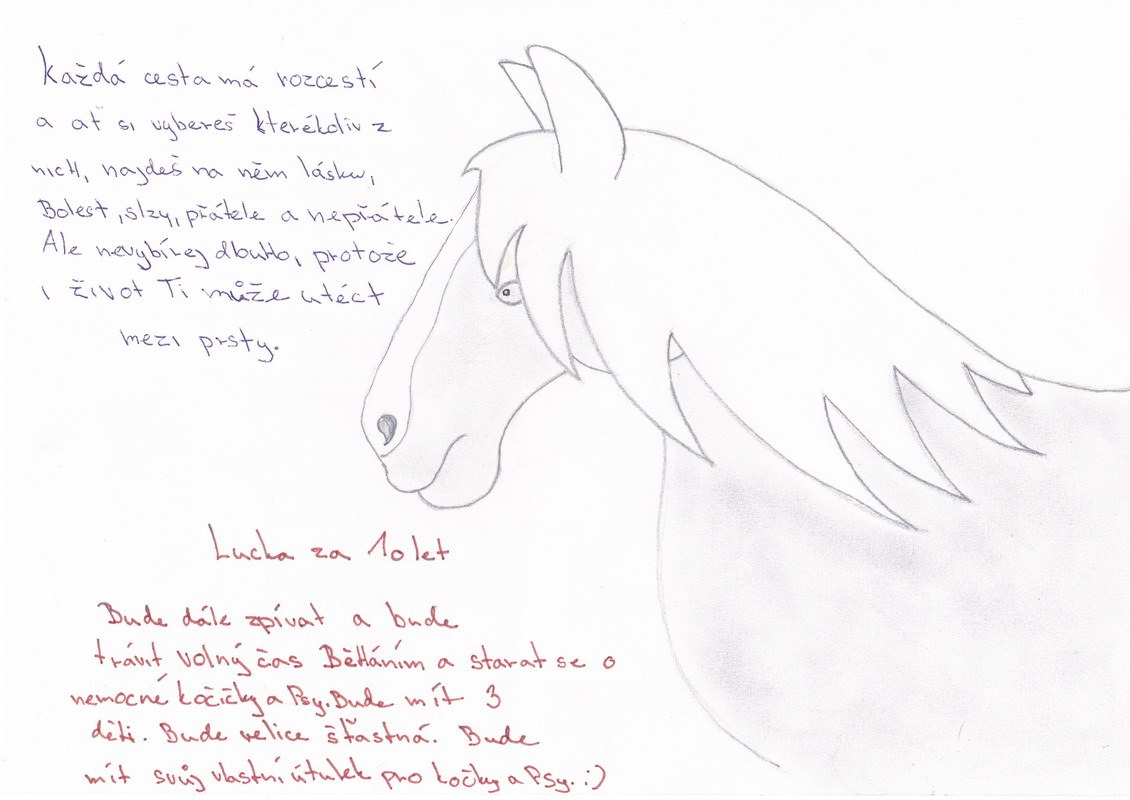 Každá cesta má rozcestí
a ať si vybereš kterékoliv z
nicH, najdeš na něm lásku,
Bolest, slzy, přátele a nepřátele.
Ale nevybírej dlouHo, protože
i život Ti může utéct
mezi prsty.
Lucka za 10 let
Bude dále zpívat a bude
trávit volný čas BěHáním a starat se o
nemocné kočičky a Psy. Bude mít 3
děti. Bude velice šťastná. Bude
mít svůj vlastní útulek pro kočky a Psy. :)